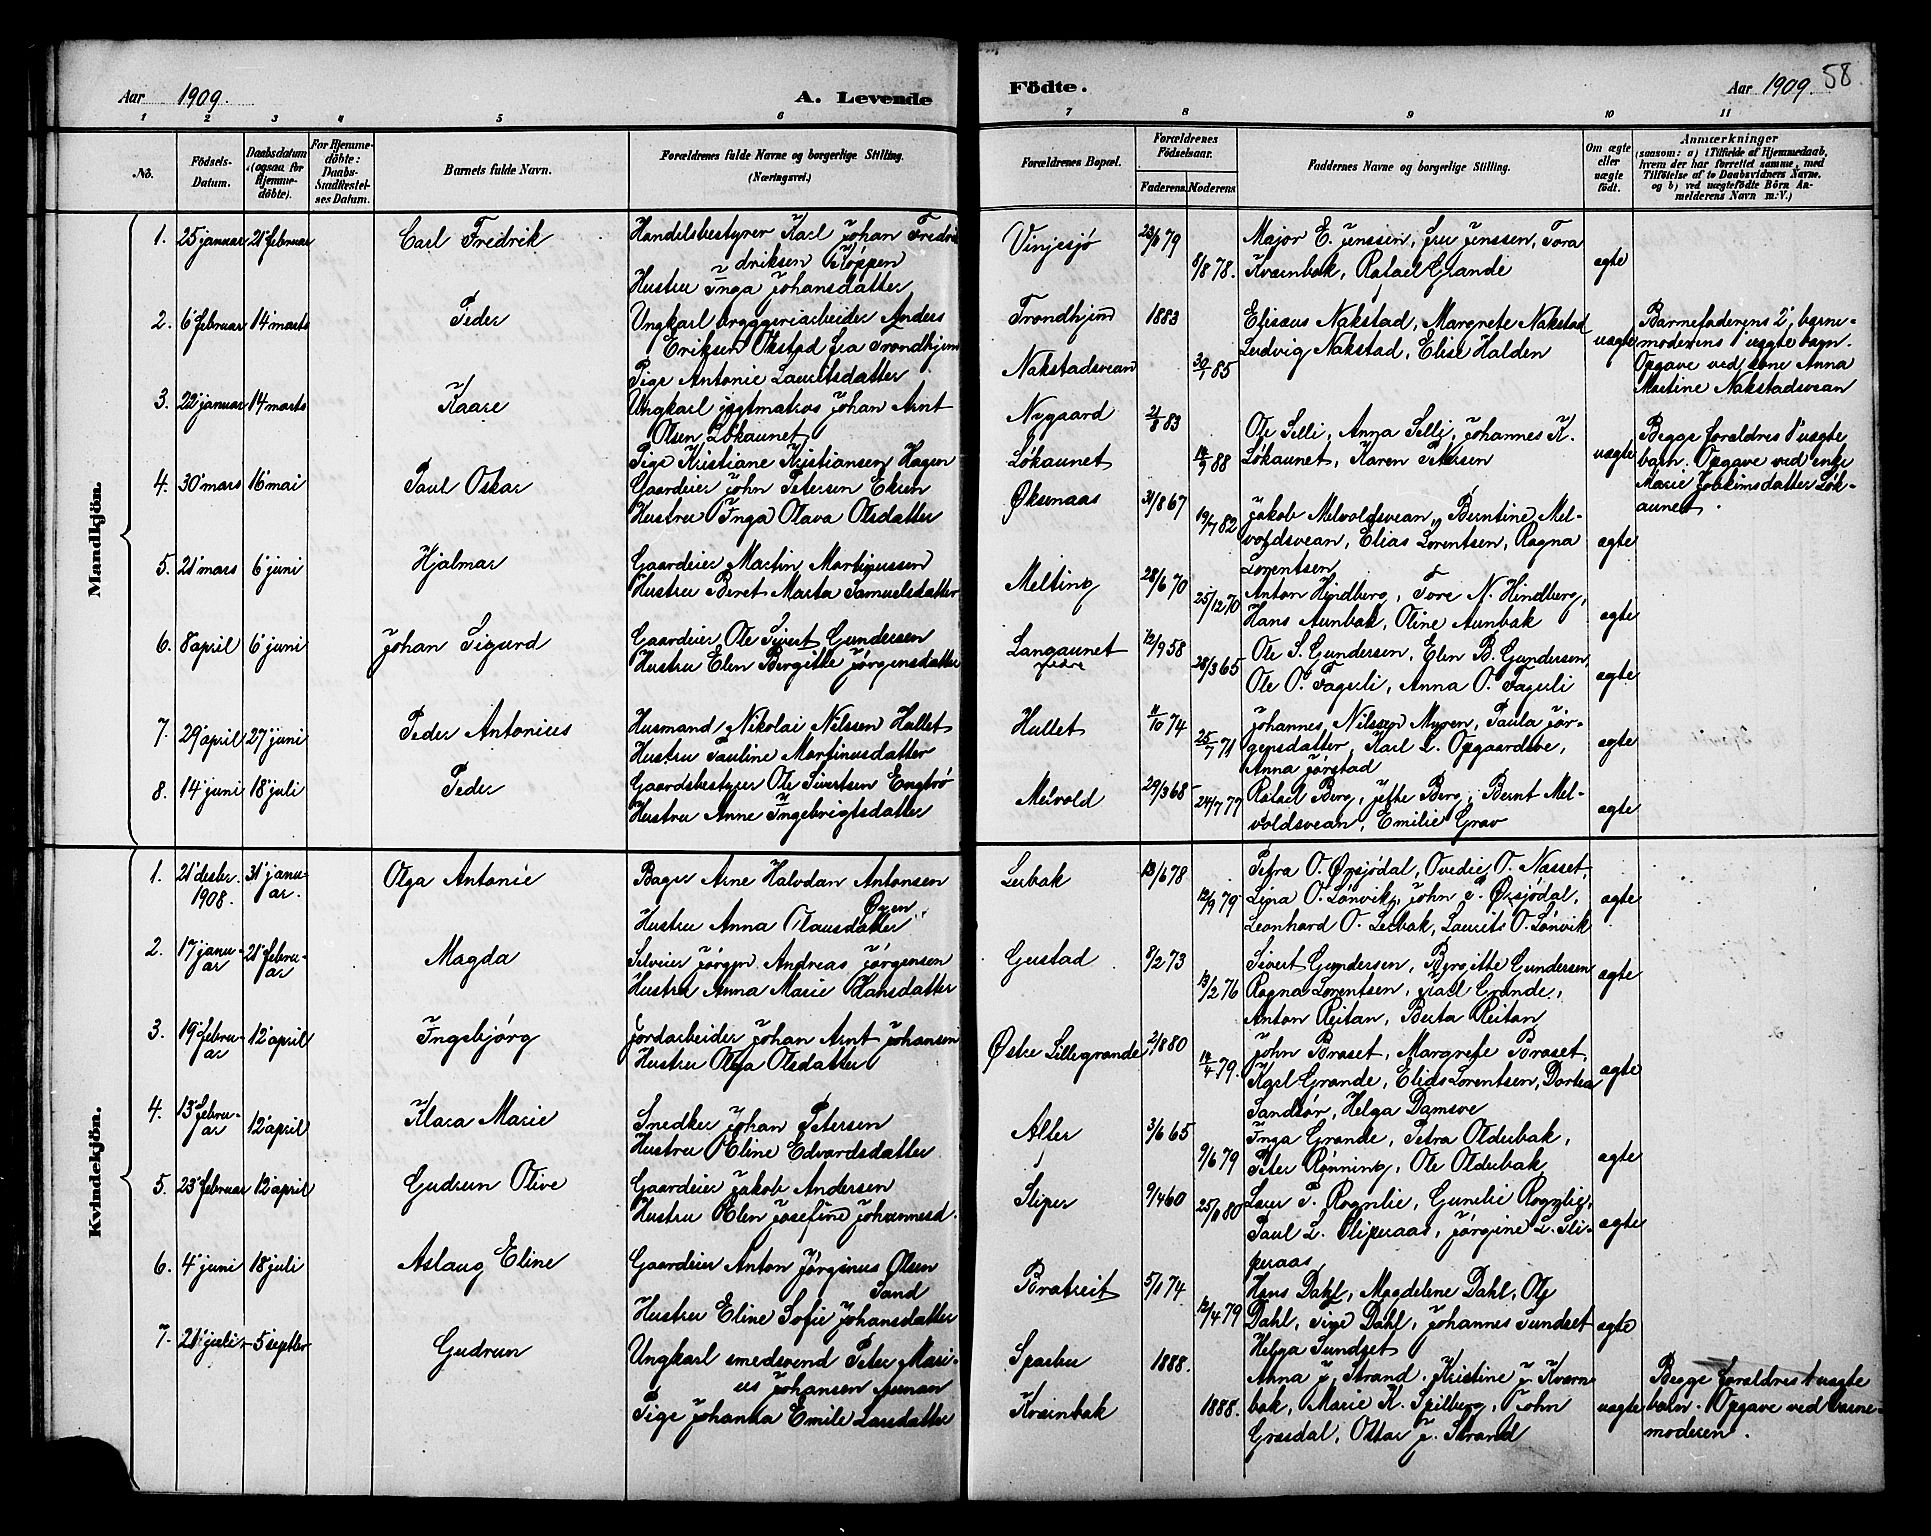 Aar 1909.
A. Levende
Födte.
Aar 1909. 58
1 2 3 4 5 6 7 8 9 10 11
No.
Födsels-Datum.
Daabsdatum (ogsaa for Hjemme-döbte).
For Hjemme-döbte: Daabs-Stadfæstel-ses Datum.
Barnets fulde Navn.
Forældrenes fulde Navne og borgerlige Stilling. (Næringsvei.)
Forældrenes Bopæl.
Forældrenes Födselsaar.
Faderens Moderens
Faddernes Navne og borgerlige Stilling.
Om ægte eller uægte födt.
Anmærkninger
(saasom: a) i Tilfælde af Hjemmedaab, hvem der har forrettet samme, med Tilföielse af to Daabsvidners Navne. og b) ved uægtefödte Börn An-melderens Navn m: V.)
Mandkjön.
1. 25 januar 21 februar Carl Fredrik
Handelsbestyrer Karl Johan Fredri
driksen Koppen
Hustru Inga Johansdatter
Vinjesjø /79 8/8 78.
Major E. Jenssen, fru Jenssen, Tora
Kvernbak, Rafael Grande
ægte
2. 6 februar 14 marts Peder
Ungkarl bryggeriarbeider Anders
Eriksen Okstad fra Trondhjem
Pige Antonie Lauritsdatter
Trondhjem 1883
Nakstadsvean 30/1 85
Elisæus Nakstad, Margrete Nakstad
Ludvig Nakstad, Elise Halden
uægte
Barnefaderens 2, barne-
moderens 1 uægte barn.
Opgave ved kone Anna
Martine Nakstadsvean
3. 22 januar 14 marts Kaare
Ungkarl jægtmatros Johan Arnt
Olsen Løkaunet
Pige Kristiane Kristiansen Hagen
Nygaard 21/8 83
Løkaunet /9 88
Ole Selli, Anna Selli, Johannes K.
Løkaunet, Karen Petersen
uægte
Begge forældres 1 uægte
barn. Opgave ved enke
Marie Joakimsdatter Løk-
aunet.
4. 30 mars 16 mai Paul Oskar
Gaardeier John Petersen Ekren
Hustru Inga Olava Olsdatter
Øksenaas 31/8 67 19/7 82
Jakob Melvoldsvean, Berntine Mel-
voldsvean, Elias Lorentsen, Ragna
Lorentsen
ægte
5. 21 mars 6 juni Hjalmar
Gaardeier Martin Martinussen
Hustru Beret Marta Samuelsdatter
Melting 28/6 70 25/12 70
Anton Hindberg, Tore N. Hindberg,
Hans Aunbak, Oline Aunbak
ægte
6. 8 april 6 juni Johan Sigurd
Gaardeier Ole Sivert Gundersen
Hustru Elen Bergitte Jørgensdatter
Langaunet 12/9 58
nedre 28/3 65
Ole S. Gundersen, Elen B. Gundersen,
Ole O. Fagerli, Anna O. Fagerli
ægte
7. 29 april 27 juni Peder Antonius
Husmand Nikolai Nilssen Hallet
Hustru Pauline Martinusdatter
Hallet 11/10 74 25/7 71
Johannes Nilssen Myren, Paula Jør-
gensdatter, Karl L. Opgaardsve,
Anna Jørstad
ægte
8. 14 juni 18 juli Peder
Gaardsbestyrer Ole Sivertsen Engtrø
Hustru Anne Ingebrigtsdatter
Melvold 29/3 68 24/7 77
Rafael Berg, Jette Berg, Bernt Mel-
voldsvean, Emilie Grav
ægte
Kvindekjön.
1. 21 desbr. 1908. 31 janu-ar. Olga Antonie
Bager Arne Halvdan Antonsen
Øren
Hustru Anna Olausdatter
Leibak 13/6 78 12/9 79
Petra O. Ørsjødal, Ovedie O. Næsset,
Lina O. Lønvik, John P. Ørsjødal,
Leonhard O. Leibak, Laurits O. Lønvik
ægte
2. 17 janu-ar 21 febru-ar Magda
Selveier Jørgen Andreas Jørgensen
Hustru Anna Marie Hansdatter
Gustad 8/2 73 13/2 76
Sivert Gundersen, Bergitte Gundersen
Ragna Lorentsen, Karl Grande,
Anton Reitan, Berta Reitan
ægte
3. 19 febru-ar 12 april Ingebjørg
Jordarbeider Johan Arnt Johansen
Hustru Olga Olsdatter
Østre Lillegrande 2/8 80 14/4 79.
John Braset, Margrete Braset,
Karl Grande, Elias Lorentsen, Dortea
Sandsør, Helga Damsve
ægte
4. 13 febru-ar 12 april Klara Marie
Snedker Johan Petersen
Hustru Eline Edvardsdatter
Alter 3/6 65 9/6 79
Inga Grande, Petra Olderbak,
Peter Rønning, Ole Olderbak
ægte
5. 23 februar 12 april Gudrun Olive
Gaardeier Jakob Andersen
Hustru Elen Josefine Johannesd.
Sliper 9/4 60 25/ 80
Laur P. Rognlie, Gunelie Rognlie,
Paul L. Sliperaas, Jørgine L. Sli-
peraas
ægte
6. 4 juni 18 juli Aslaug Eline
Gaardeier Anton Jørginus Olsen
Sand
Hustru Eline Sofie Johansdatter
Bratreit 5/1 74 12/4 79
Hans Dahl, Magdelene Dahl, Ole
Dahl, Sige Dahl, Johannes Sundset
Helga Sundset
ægte
7. 21 juli 5 septbr Gudrun
Ungkarl smedsvend Peter Mari-
us Johansen Aunan
Pige Johanna Emilie Larsdatter
Sparbu 1888.
Kvernbak 1888.
Anna J. Strand, Kristine J. Kvern
bak, Marie K. Spilberg, John
Græsdal, Ottar J. Strand
uægte
Begge forældres 1 uægte
barn. Opgave ved barne-
moderen.